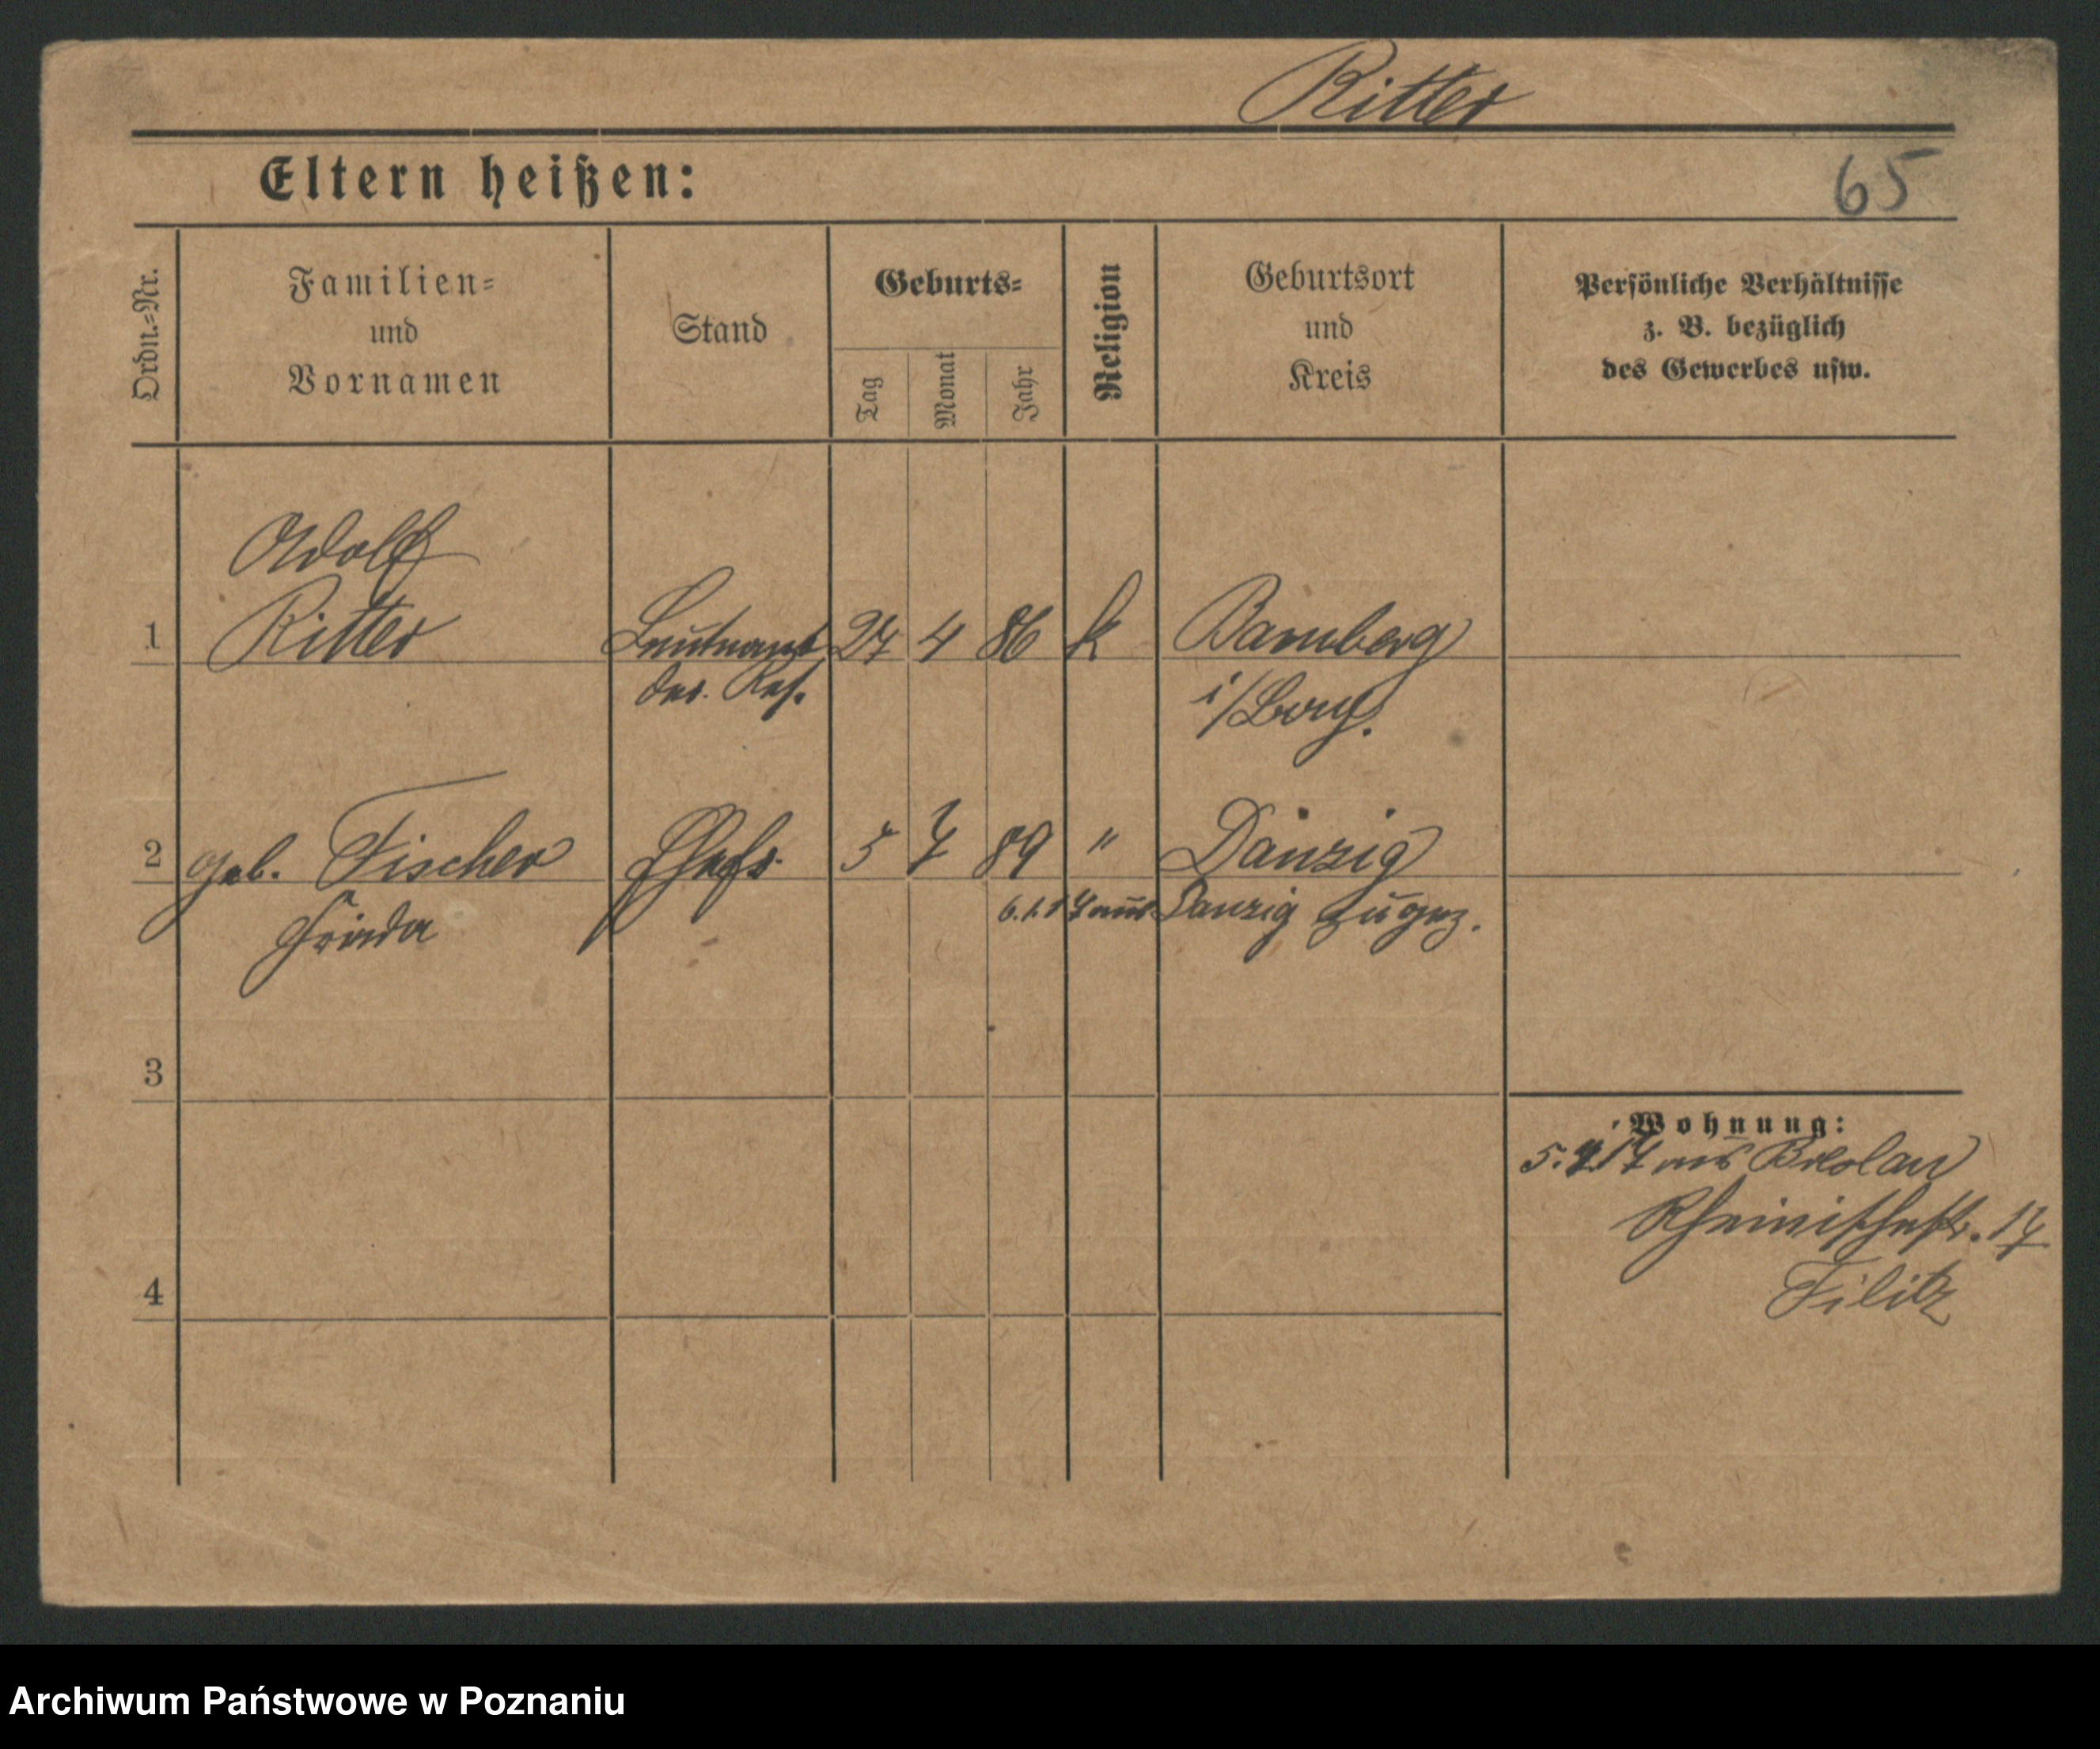 Ritter
Eltern heißen:
65
Ordn.-Nr.
Familien-
und
Vornamen
Stand
Geburts-
Tag
Monat
Jahr
Religion
Geburtsort
und
Kreis
Persönliche Verhältnisse
z. B. bezüglich
des Gewerbes usw.
Adolf
1 Ritter Leutnant 27 4 86 k Bamberg
der Res. i/Bay.
2 geb. Fischer Ehefr. 5 7 89 " Danzig
Frieda 6.1.17 aus Danzig zugez.
3
Wohnung:
5. 17 aus Breslau
Rheinischestr. 17
4 Filitz
Archiwum Państwowe w Poznaniu